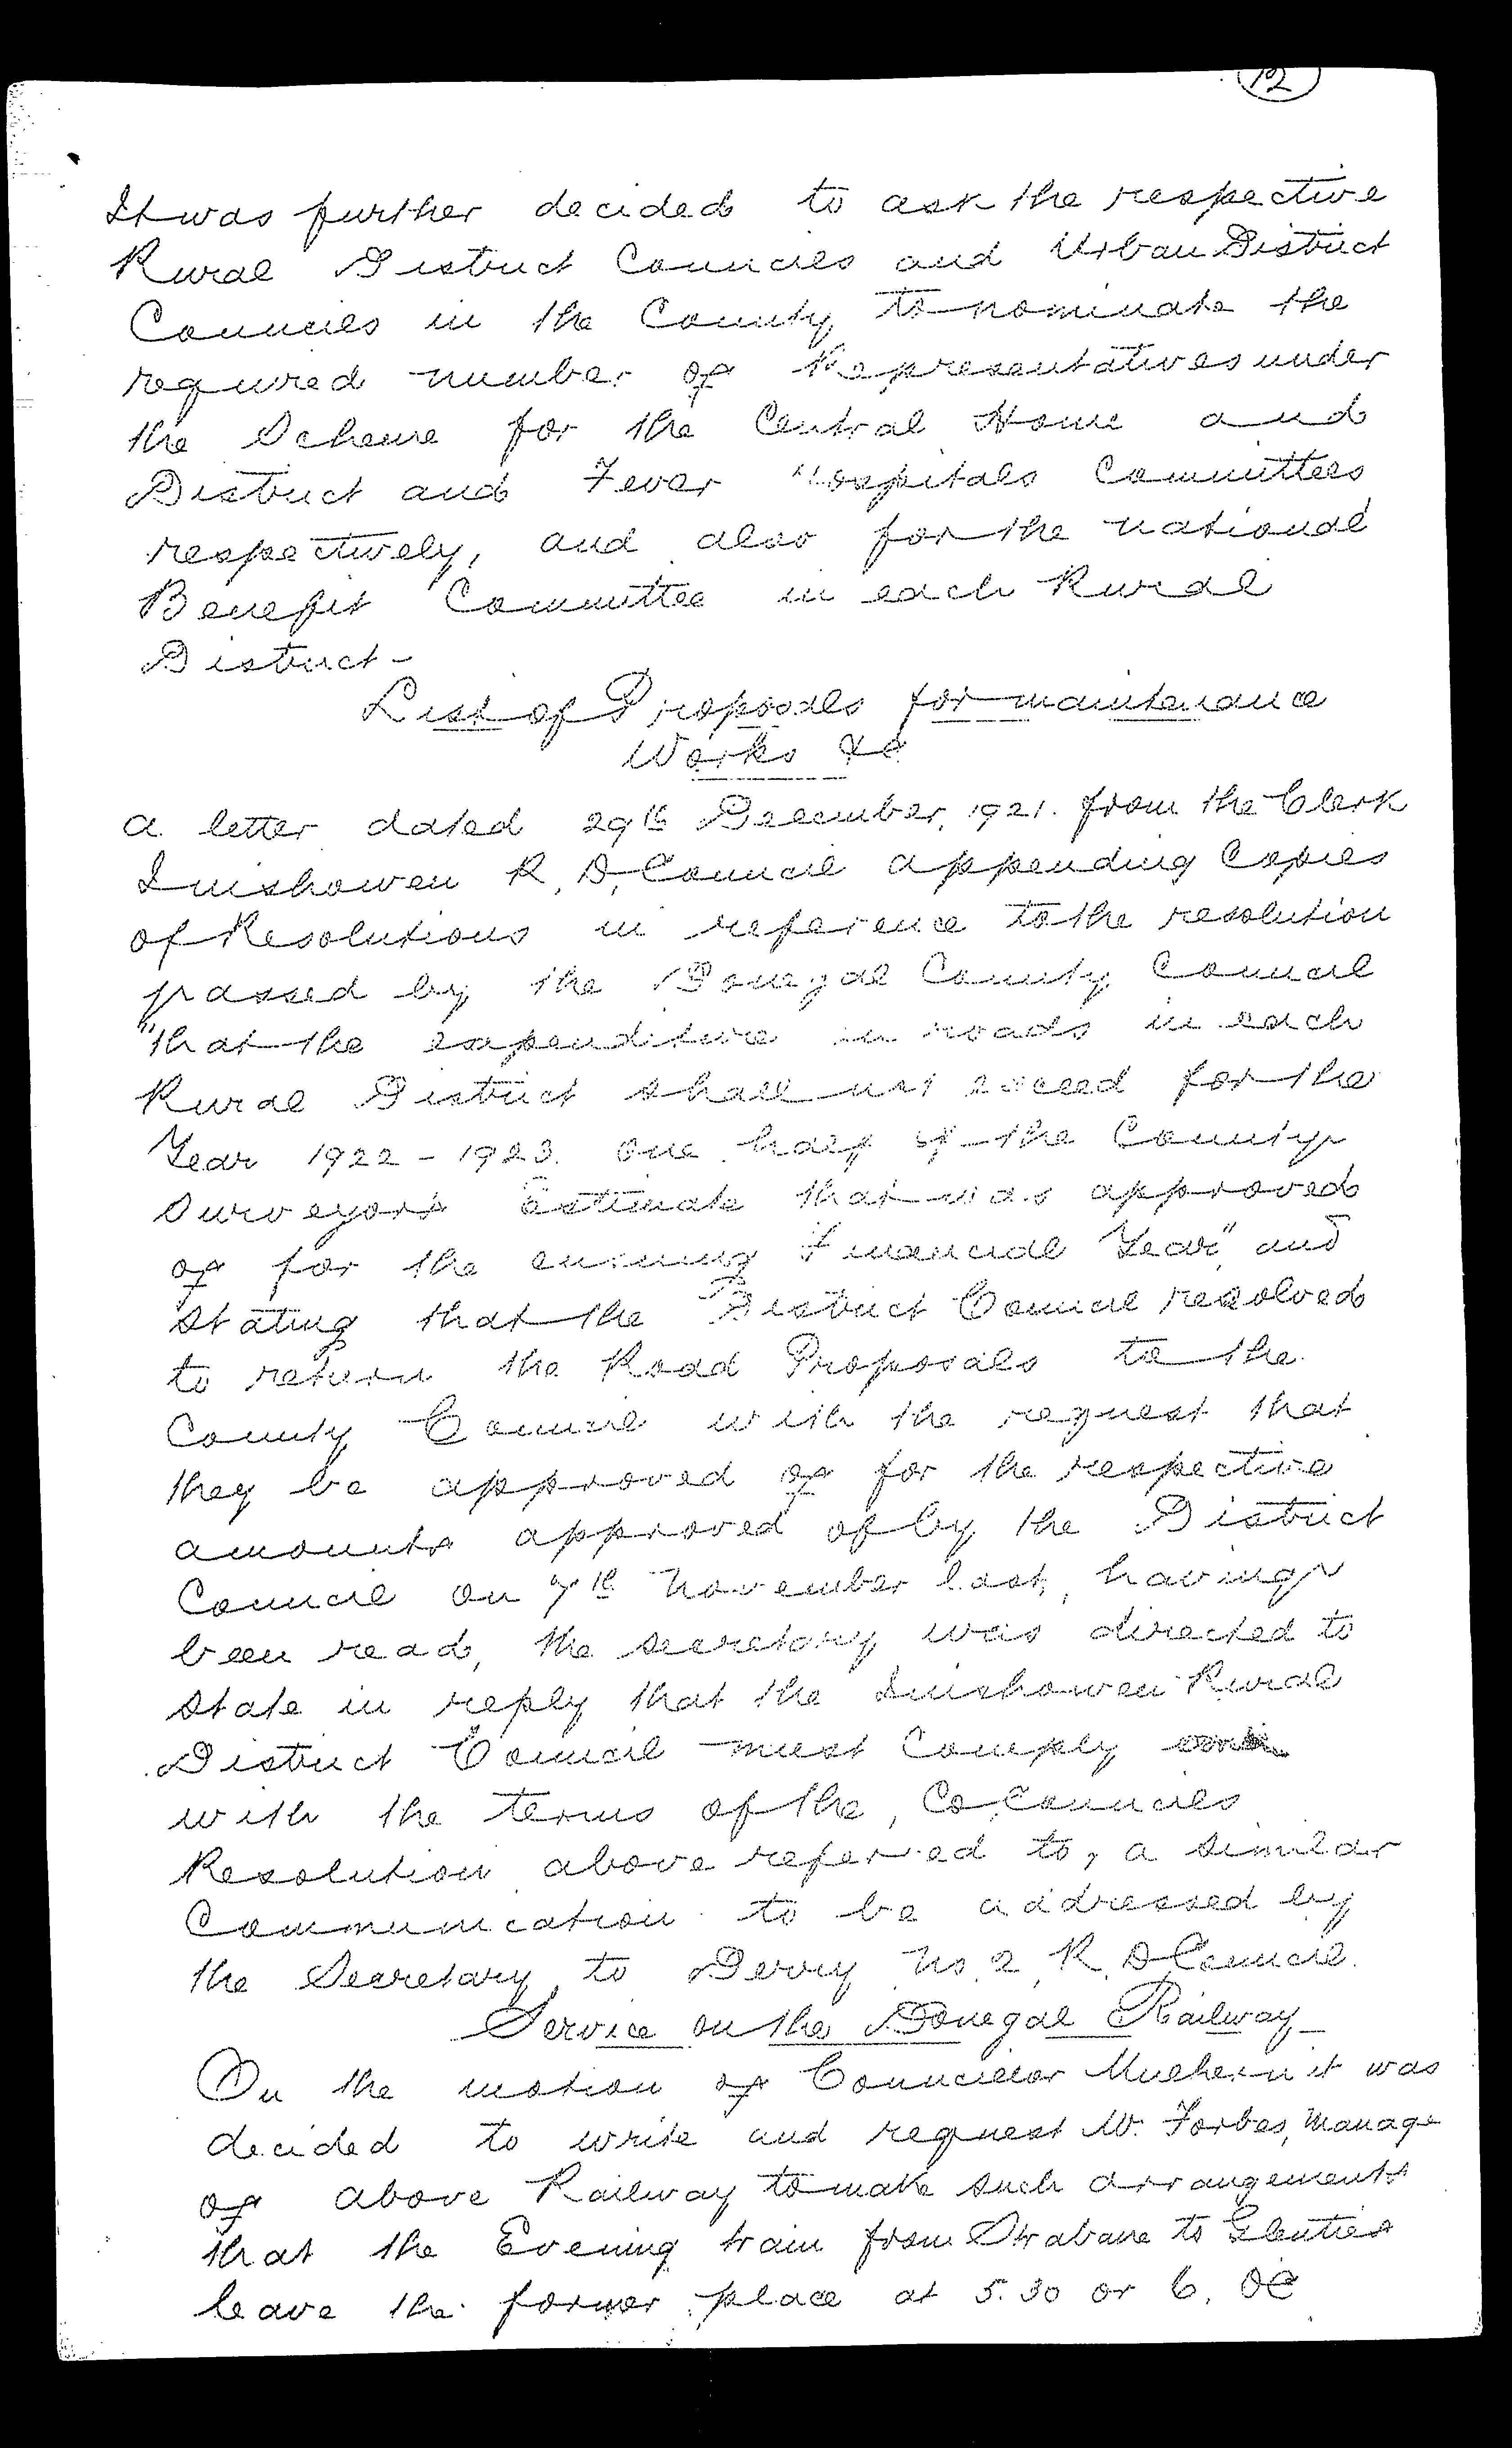 12
It was further decided to ask the respective
Rural District Councils and Urban District
Councils in the County to nominate the
required number of Representatives under
the Scheme for the Central Home and
District and Fever Hospitals Committees
respectively, and also for the national
Benefit Committee in each Rural
District -
List of Proposals for maintenance
Works &c
a letter dated 29th December, 1921. from the Clerk
Inishowen R. D. Council appending Copies
of Resolutions in reference to the resolution
passed by the Donegal County Council
"that the expenditure on roads in each
Rural District shall not exceed for the
Year 1922 - 1923. one half of the County
Surveyor's Estimate that was approved
of for the ensuing Financial Year," and
stating that the District Council resolved
to return the Road Proposals to the
County Council with the request that
they be approved of for the respective
amounts approved of by the District
Council on 7th November last, having
been read, the secretary was directed to
state in reply that the Inishowen Rural
District Council must Comply
with the terms of the, Co. Councils
Resolution above referred to, a similar
Communication to be addressed by
the Secretary, to Derry No. 2, R. D Council.
Service on the Donegal Railway
On the motion of Councillor Mulhern it was
decided to write and request Mr. Forbes, Manage
of above Railway to make such arrangements
that the Evening train from Strabane to Glenties
leave the former place at 5.30 or 6. OC